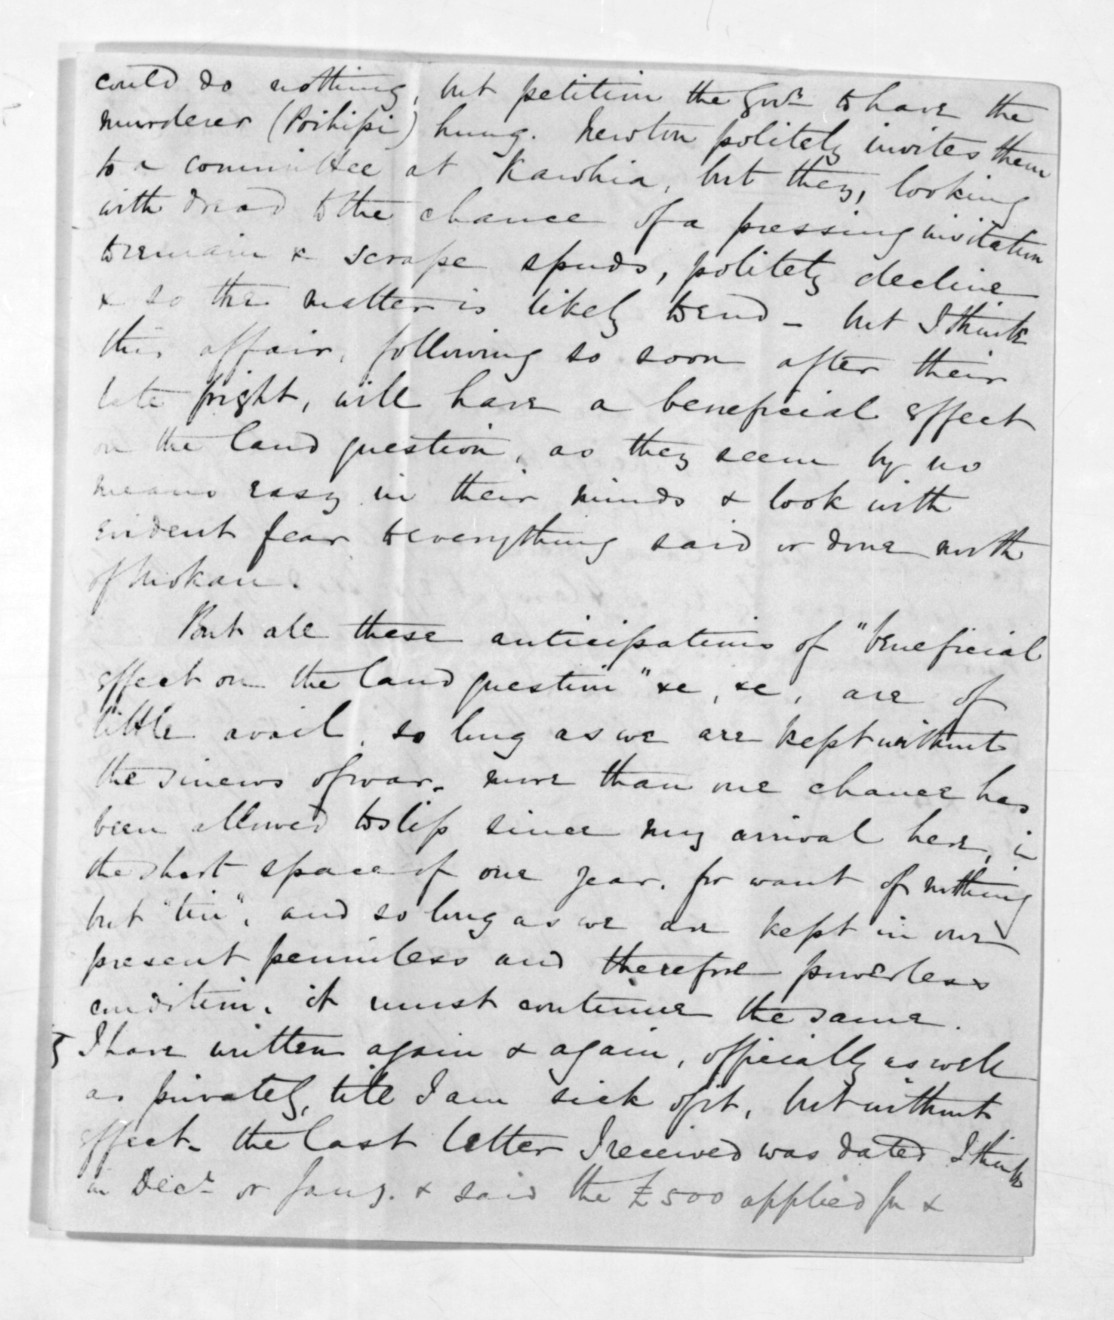 could do nothing, but petition the Govr. to have the
murderer (Poihipi) hung. Newton politely invites them
to a committee at Kawhia, but they, looking
with dread to the chance of a pressing invitation
to remain & scrape spuds, politely decline
& so the matter is likely to end - but I think
this affair, following so soon after their
late fright, will have a beneficial effect
on the land question, as they seem by no
means easy in their minds & look with
evident fear to everything said or done north
of Mokau.
But all these anticipations of "beneficial
effect on the land question" &c, &c, are of
little avail, so long as we are kept without
the sinews of war. more than one chance has
been allowed to slip since my arrival here, in
the short space of one year, for want of nothing
but "tin", and so long as we are kept in our
present penniless and therefore powerless
condition, it must continue the same.
I have written again & again, officially as well
as privately, till I am sick of it, but without
effect. the last letter I received was dated I think
in Decr. or Jany. & said the £500 applied for &